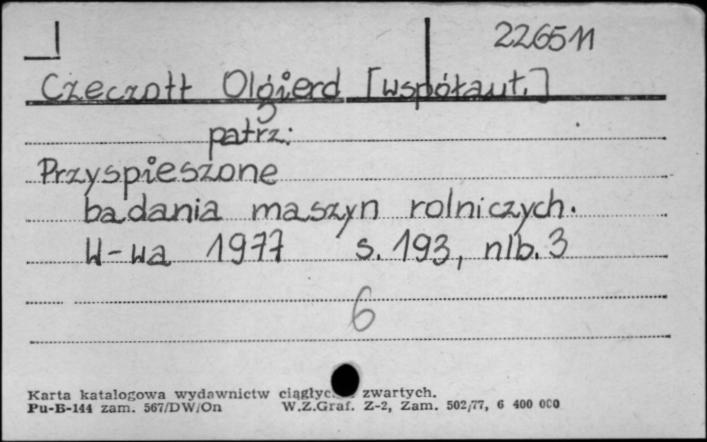 226511
Czeczott Olgierd [współaut.]
patrz:
Przyspieszone
badania maszyn rolniczych.
W-wa 1977 s. 193, nlb. 3
6
Karta katalogowa wydawnictw zwartych.
Pu-B-144 zam. 567/DW/On W.Z.Graf. Z-2, Zam. 502/77, 6 400 000